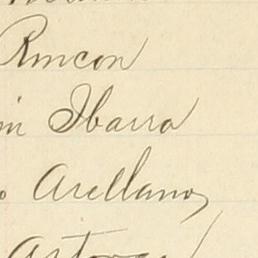 Rincon
in Ibarra
o Arellano,